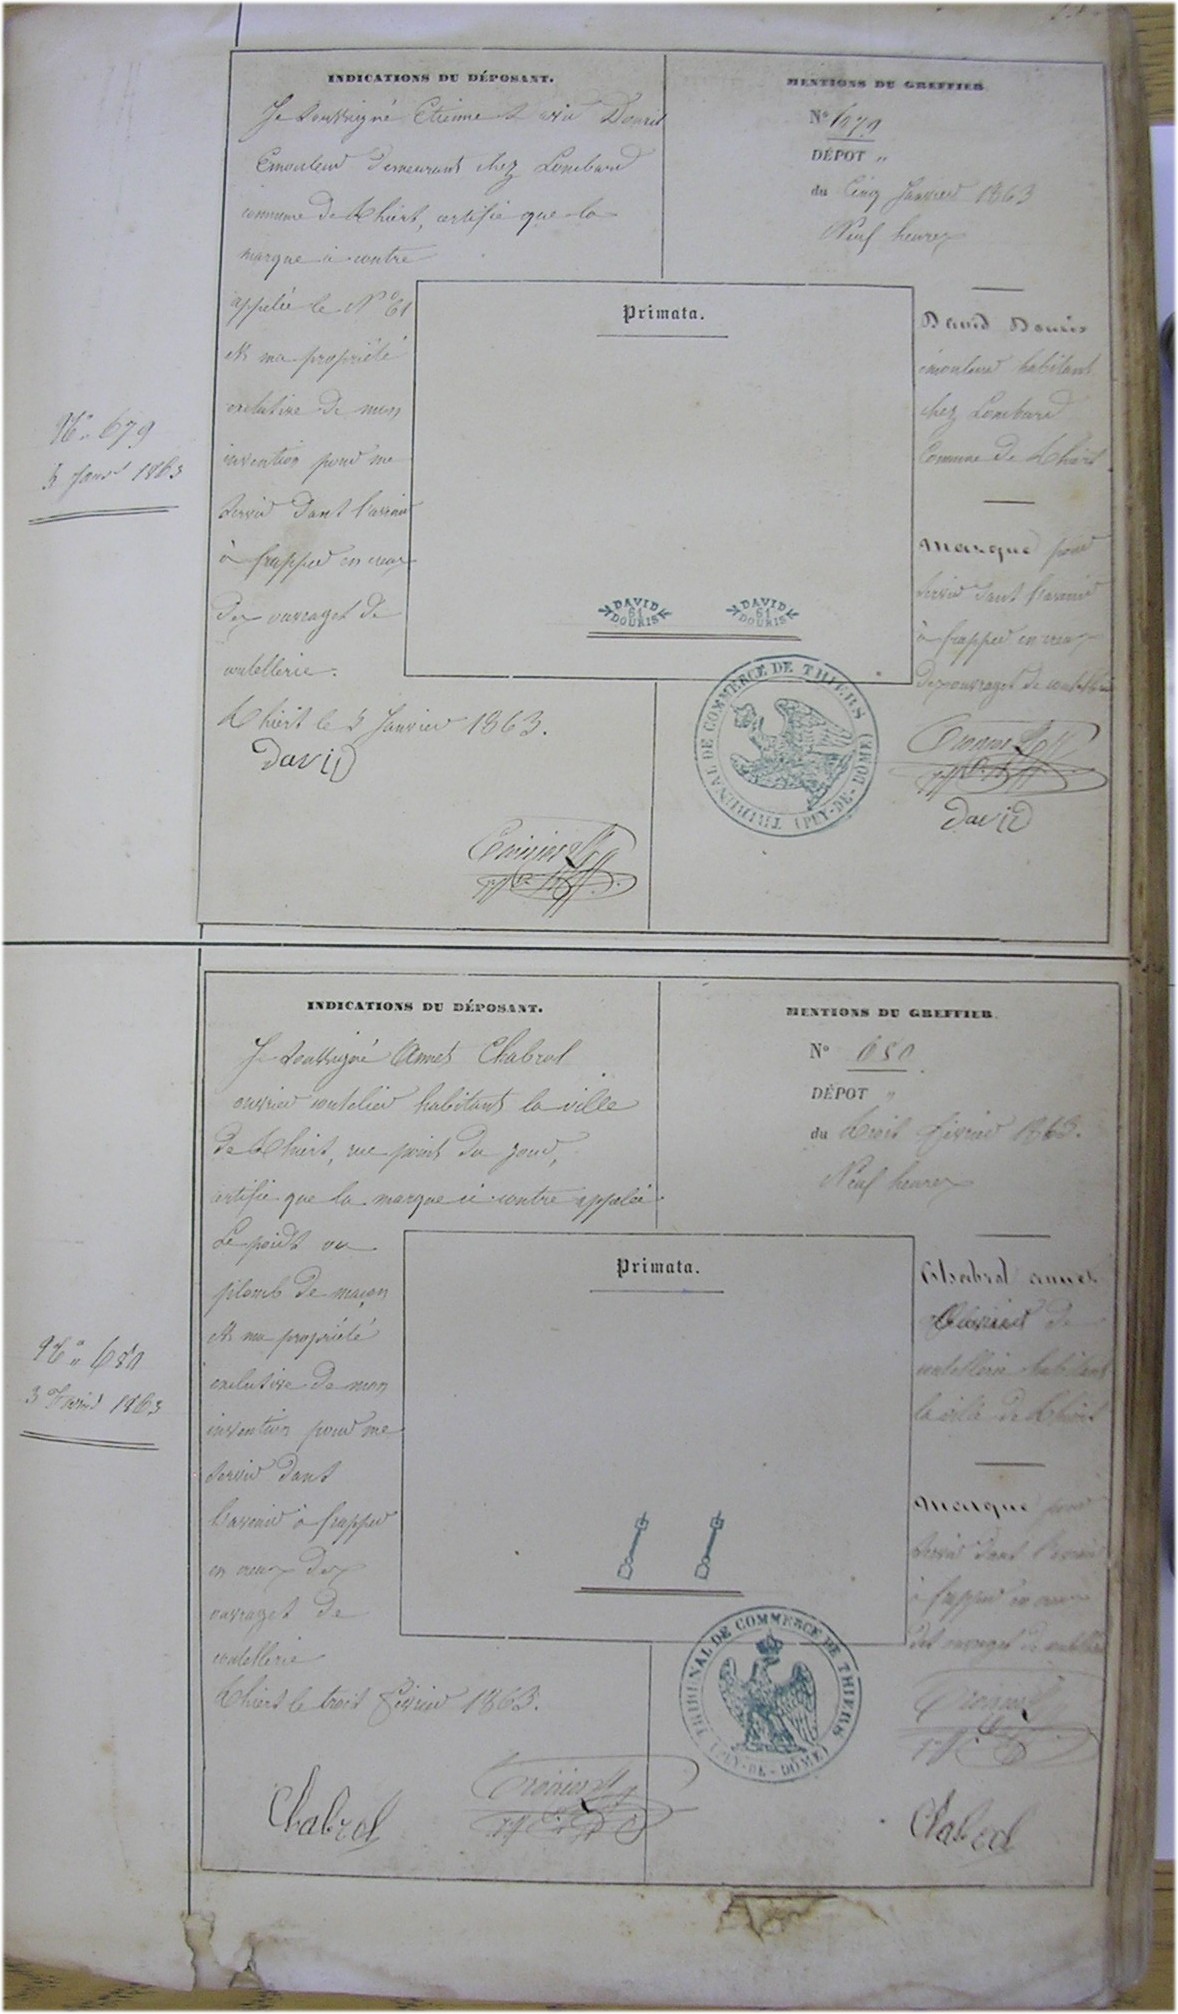 INDICATIONS DU DÉPOSANT.
Je soussigné Etienne David Douris
Emouleur demeurant chez Lombard
commune de Thiers, certifie que la
marque ci contre
appelée le N° 61
est ma propriété
exclusive de mon
invention pour me
servir dans l'avenir
à frapper en creux
des ouvrages de
coutellerie.
Thiers le 5 Janvier 1863.
David
N° 679
5 Janvr 1863
MENTIONS DU GREFFIER
N° 679
DÉPOT "
du Cinq Janvier 1863
Neuf heures
Primata.
DAVID
61
DOURIS
DAVID
61
DOURIS
David Douris
émouleur habitant
chez Lombard
Commune de Thiers
Marque pour
servir dans l'avenir
à frapper en creux
des ouvrages de coutellerie
TRIBUNAL DE COMMERCE DE THIERS
(PUY-DE-DÔME)
David
INDICATIONS DU DÉPOSANT.
Je soussigné Annet Chabrol
ouvrier coutelier habitant la ville
de Thiers, rue point du jour,
certifie que la marque ci contre appelée
Le poids ou
plomb de maçon
est ma propriété
exclusive de mon
invention pour me
servir dans
l'avenir à frapper
en creux des
ouvrages de
coutellerie
Thiers le trois février 1863.
Chabrol
N° 680
3 Février 1863
MENTIONS DU GREFFIER
N° 680
DÉPOT "
du trois février 1863.
Neuf heures
Primata.
Chabrol annet
de
coutellerie habitant
la ville de Thiers
Marque pour
servir dans l'avenir
à frapper en creux
des ouvrages de coutellerie
TRIBUNAL DE COMMERCE DE THIERS
(PUY-DE-DÔME)
Chabrol